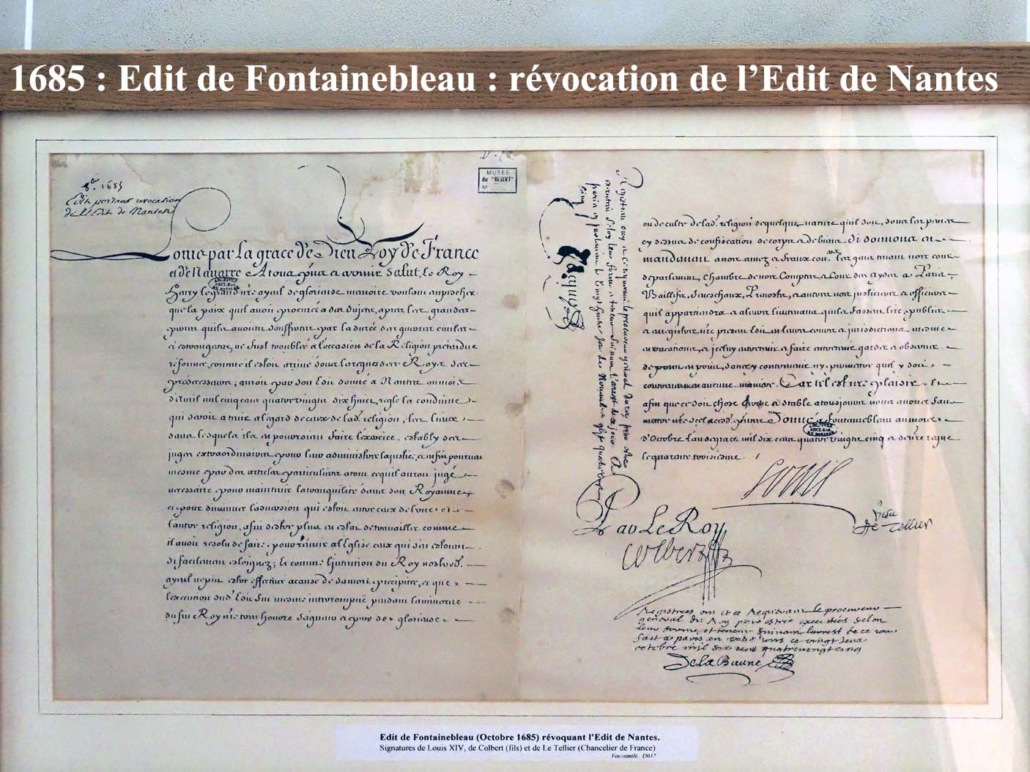 1685 : Edit de Fontainebleau : révocation de l'Edit de Nantes
8.bre 1685
Edit portant revocation
de l'edit de Nantes
MUSÉE
du "DÉSERT"
Louis par la grace de Dieu Roy de France
et de Navarre A tous presens et a venir Salut, le Roy
Henry le grand nre ayeul de glorieuse memoire voulant empescher
que la paix qu'il avoit procurée a ses sujets, apres les grandes
pertes qu'ils avoient souffertes par la durée des guerres civiles
et estrangeres, ne fust troublée a l'occasion de la Religion pretendue
reformée, comme il estoit arrivé sous les regnes des Roys ses
predecesseurs, auroit par son Edit donné a Nantes au mois
d'avril mil cinq cens quatre vingt dix huit, reglé la conduite
qui devoit a tenir a l'egard de ceux de lad. religion, les lieux
dans lesquels ils en pourroient faire l'exercice, estably des
juges extraordinaires pour leur administrer la justice, et enfin pourveu
mesme par des articles particuliers a tout ce qu'il auroit jugé
necessaire pour maintenir la tranquilité dans son Royaume
et pour diminuer l'aversion qui estoit entre ceux de l'une et
l'autre religion, afin d'estre plus en estat de travailler comme
il avoit resolu de faire, pour reunir a l'Eglise ceux qui s'en estoient
si facilement esloignez; et comme l'intention du Roy nostred.
ayeul ne put estre effectuée a cause de sa mort precipitée, et que
l'execution dud. Edit fut mesme interrompue pendant la minorité
du feu Roy nre tres honoré seigneur et pere de glorieuse
Jacques
ou de culte de lad. religion de quelque nature qu'il soit, sous les peines
cy dessus de confiscation de corps et de biens. Si donnons en
mandement a nos amez et feaux cons.ers les gens tenans nos cours
de parlement, Chambre de nos Comptes et Cour des aydes a Paris
Baillifs, Senechaux, Prevosts, et autres nos justiciers et officiers
qu'il appartiendra et a leurs lieutenans, qu'ils fassent lire, publier
et enregistrer nre present Edit en leurs cours et jurisdictions, mesme
en vacations, et iceluy entretenir et faire entretenir, garder et observer
de point en point, sans y contrevenir ny permettre qu'il y soit
contrevenu en aucune maniere. Car tel est nre plaisir. Et
afin que ce soit chose ferme et stable a tousjours nous avons fait
mettre nre scel a cesd. presentes. Donné a Fontainebleau au mois
d'Octobre l'an de grace mil six cens quatre vingt cinq et de nre regne
le quarante troisieme.
Louis
Visa
Le Tellier
Par Le Roy
Colbert
Registrées, ouï et ce Requerant le procureur
general du Roy pour estre executées selon
leur forme et teneur suivant l'arrest de ce jour
fait a paris en vacations ce vingt deux
octobre mil six cens quatrevingt cinq
De la Baune
Edit de Fontainebleau (Octobre 1685) révoquant l'Edit de Nantes.
Signatures de Louis XIV, de Colbert (fils) et de Le Tellier (Chancelier de France)
Fac-similé. D617